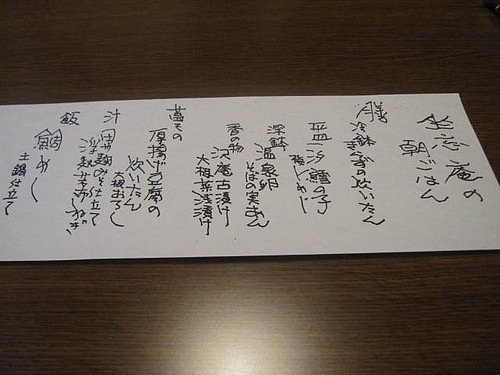 坐忘庵の
朝ごはん
膳
冷鉢 の炊いたん
平皿 一汐鱈の子
しめじ
深鉢 温泉卵
そばの実あん
香の物 沢庵古漬け
大根葉浅漬け
蓋もの
厚揚げ豆腐の
炊いたん
大根おろし
汁 田舎麹みそ仕立て
浮麩 ねぎ
飯 鯛めし
土鍋仕立て